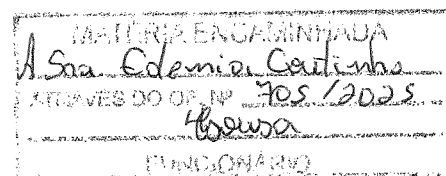 MATÉRIA ENCAMINHADA
A Sra Edemia Coutinho
ATRAVÉS DO OF. Nº 705/2025
Sousa
FUNCIONÁRIO